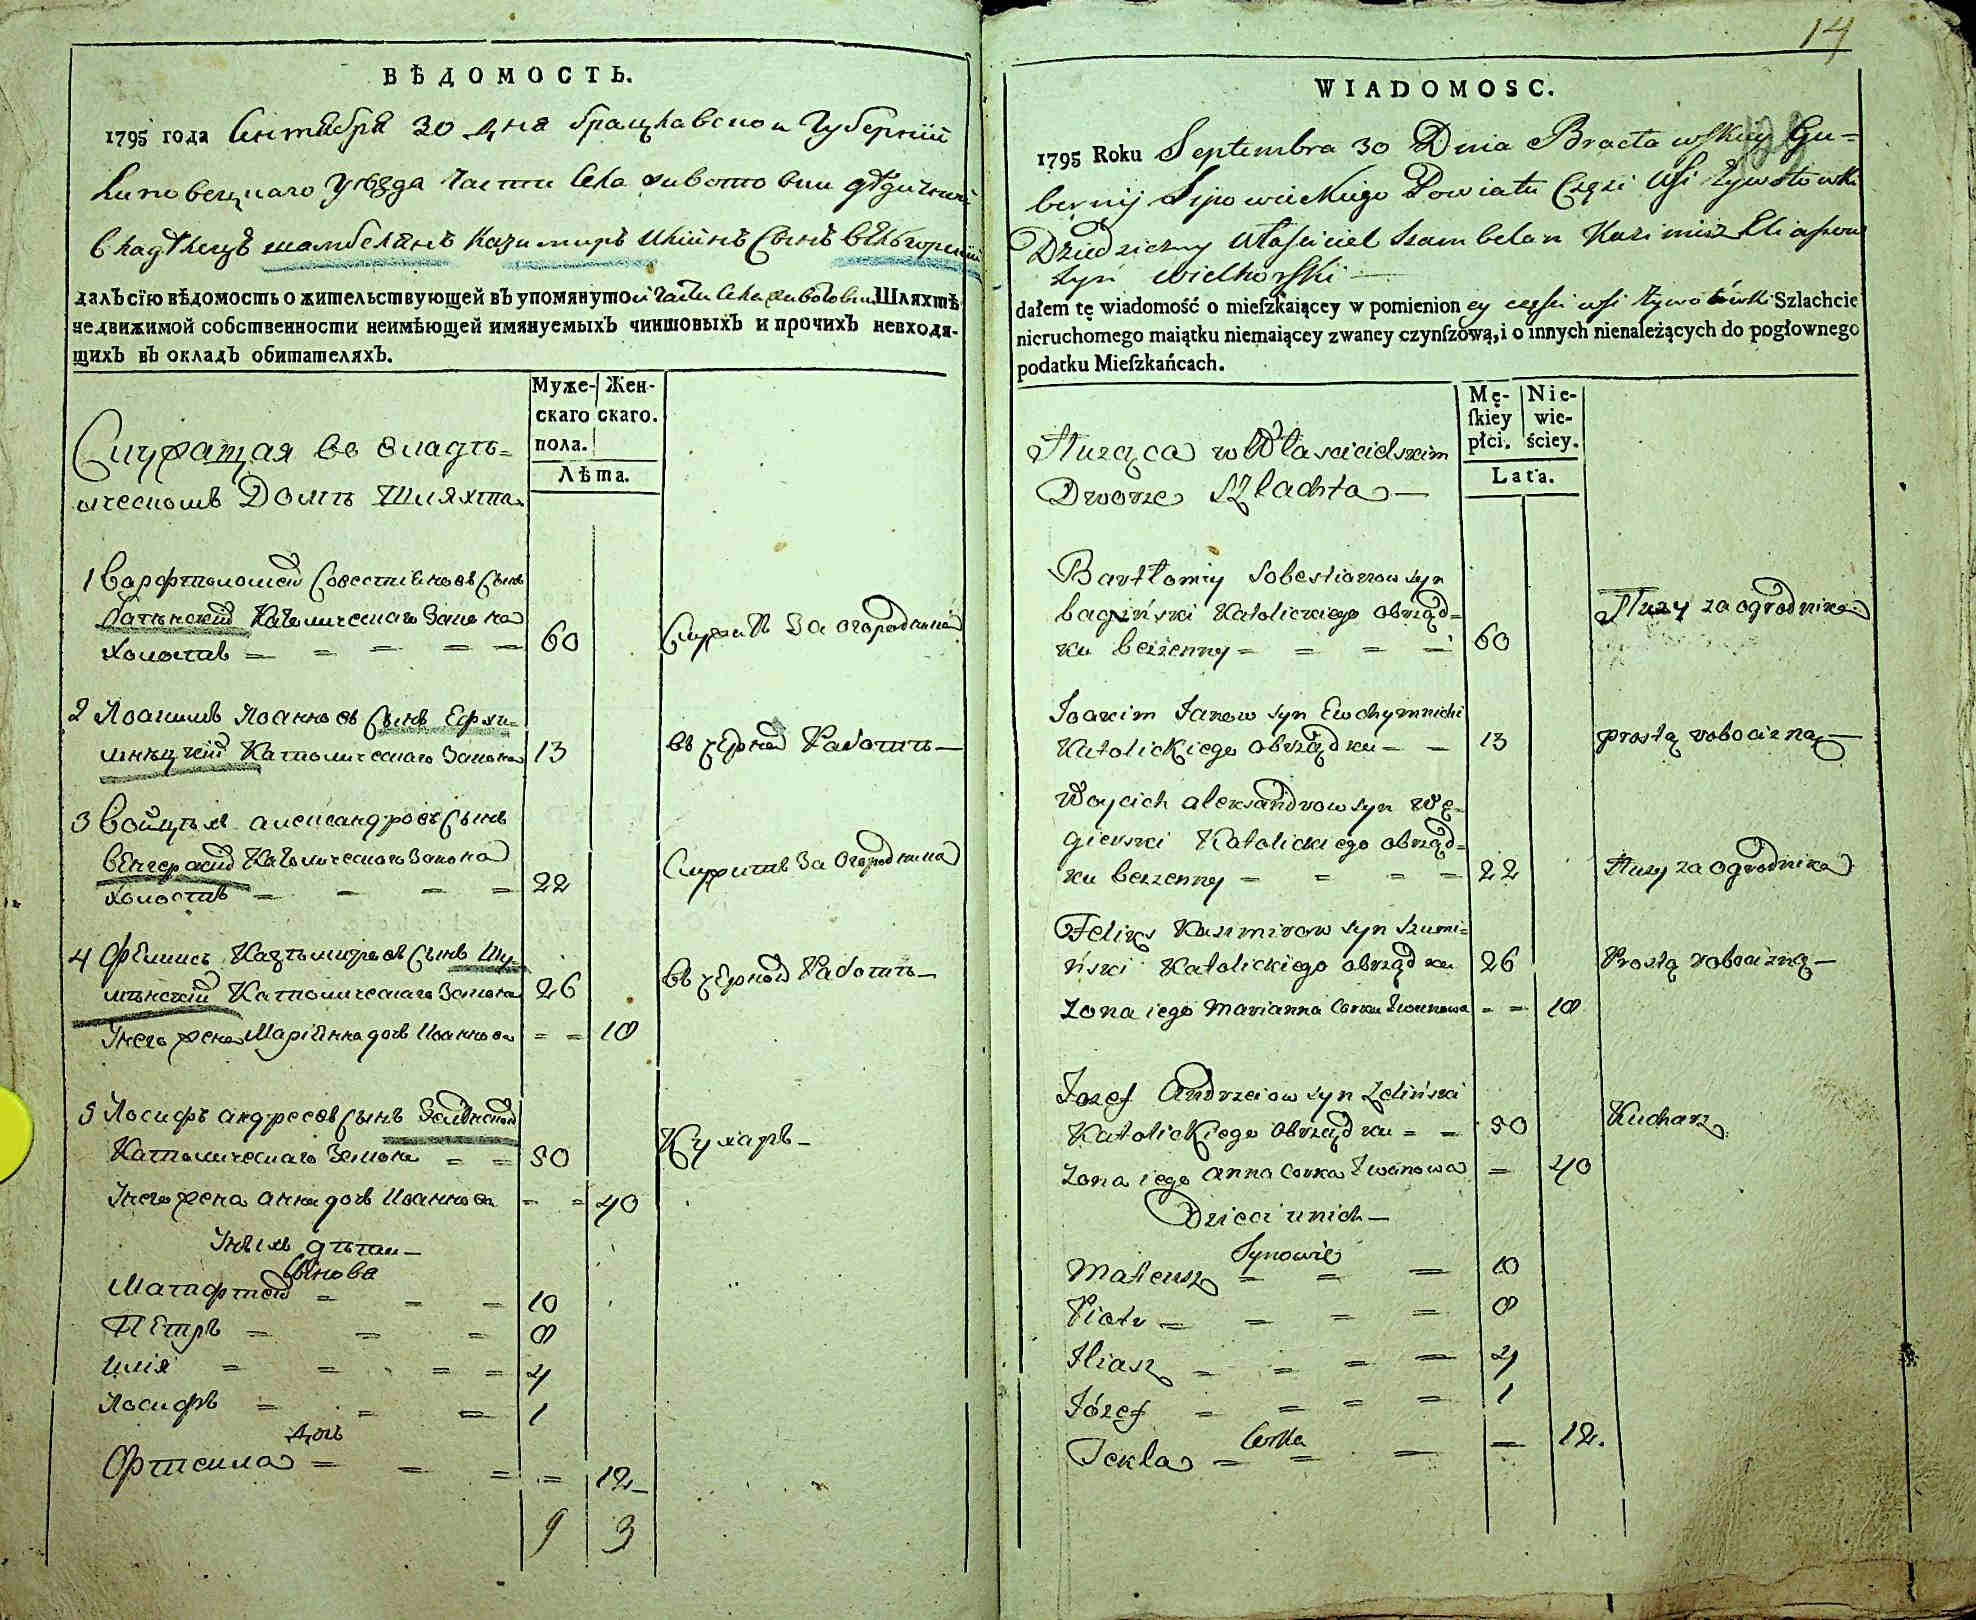 ВѢДОМОСТЬ.
1795 года Сентября 30 дня Брацлавской Губернїи
Липовецкаго Уѣзда Части Села Животовки дѣдичный
владѣлецъ шамбелянъ Казимиръ Илїинъ Сынъ Вельгорскїй
далъ сїю вѣдомость о жительствующей въ упомянутой части села Животовки Шляхтѣ
недвижимой собственности неимѣющей имянуемыхъ чиншовыхъ и прочихъ невходя-
щихъ въ окладъ обитателяхъ.
Муже- Жен-
скаго скаго.
пола.
Лѣта.
Служащая во владѣ-
лческомъ Домѣ Шляхта
1 Варфтоломей Совестїяновъ Сынъ
Католическаго Закона
холостъ = = = = = 60 Служитъ За огородника
2 Иоакимъ Иоанновъ Сынъ Ефхи-
мнѣцкїй Католическаго Закона 13 въ черной Работѣ —
3 Войцѣхъ александровъ Сынъ
Венгерскїй Католическаго Закона
холостъ = = = = 22 Служитъ За Огородника
4 Феликсъ Казѣмировъ Сынъ Шу-
мѣнскїй Католическаго Закона 26 въ черной Работѣ —
У него жена Марїянна дочь Иоаннова = = 18
5 Иосифъ андреевъ Сынъ Зелїнскїй
Католическаго Закона = = 50 Кухаръ —
У него жена анна дочь Иоаннова = = 40
У нѣхъ дѣти —
Сынова
Матфтей = = = 10
Петръ = = = 8
Илїя = = = = 4
Иосифъ = = = 1
дочь
Фтекла = = = = 12
9 3
14
WIADOMOSC.
1795 Roku Septembra 30 Dnia Bracławskiey Gu=
bernij Lipowieckiego Powiatu Częsci Wsi Zywotowki
Dziedziczny Własciciel Szambelan Kazimirz Eliaszow
syn Wielhorski —
dałem tę wiadomość o mieſzkaiącey w pomienioney częsci wsi Zywotówki Szlachcie
nieruchomego maiątku niemaiącey zwaney czynſzową, i o innych nienależących do pogłownego
podatku Mieſzkańcach.
Mę- Nie-
ſkiey wie-
płci. ściey.
Lata.
Służąca w Własciciełskim
Dworze Szlachta —
Bartłomiy Sobestianow syn
Katolickiego obrząd=
ku bezżenny = = = = 60 Służy za ogrodnika
Joakim Janow syn Ewchymnicki
Katolickiego obrządku — — 13 prostą robocizną —
Woycich alexandrow syn Wę-
gierski Katolickiego obrząd=
ku bezżenny = = = = 22 Służy za ogrodnika
Felix Kazimirow syn Szumi=
ński Katolickiego obrządku 26 Prostą robocizną —
Zona iego Marianna Corka Iwanowa = = 18
Jozef Andrzeiow syn Zeliński
Katolickiego obrządku = = 50 Kucharz
Zona iego anna Corka Iwanowa = 40
Dzieci u nich —
Synowie
Mateusz = = — 10
Piotr = = = = 8
Iliasz = = = — 4
Józef = = = = 1
Corka
Tekla = = — — 12.